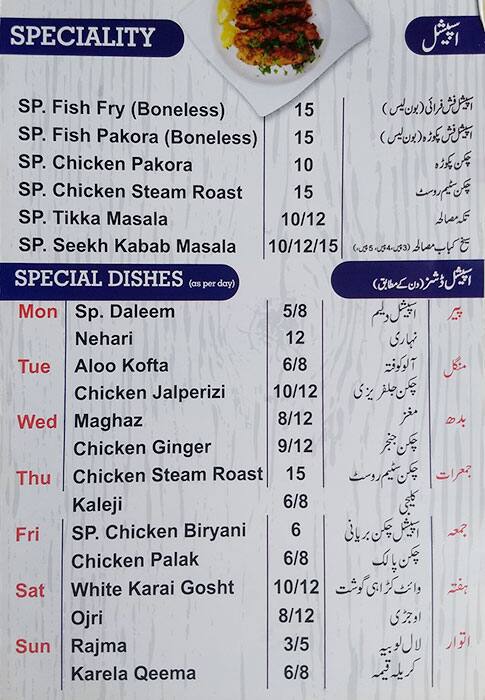 SPECIALITY اسپیشل
SP. Fish Fry (Boneless) 15 اسپیشل فش فرائی (بون لیس)
SP. Fish Pakora (Boneless) 15 اسپیشل فش پکوڑہ (بون لیس)
SP. Chicken Pakora 10 چکن پکوڑہ
SP. Chicken Steam Roast 15 چکن سٹیم روسٹ
SP. Tikka Masala 10/12 تکہ مصالحہ
SP. Seekh Kabab Masala 10/12/15 سیخ کباب مصالحہ (3 پیس، 4 پیس، 5 پیس)
SPECIAL DISHES (as per day) اسپیشل ڈشز (دن کے مطابق)
Mon Sp. Daleem 5/8 اسپیشل دلیم پیر
Nehari 12 نہاری
Tue Aloo Kofta 6/8 آلو کوفتہ منگل
Chicken Jalperizi 10/12 چکن جلفریزی
Wed Maghaz 8/12 مغز بدھ
Chicken Ginger 9/12 چکن جنجر
Thu Chicken Steam Roast 15 چکن سٹیم روسٹ جمعرات
Kaleji 6/8 کلیجی
Fri SP. Chicken Biryani 6 اسپیشل چکن بریانی جمعہ
Chicken Palak 6/8 چکن پالک
Sat White Karai Gosht 10/12 وائٹ کڑاہی گوشت ہفتہ
Ojri 8/12 اوجڑی
Sun Rajma 3/5 لال لوبیہ اتوار
Karela Qeema 6/8 کریلہ قیمہ